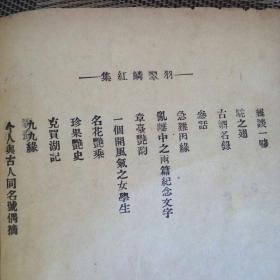 羽翠鱗紅集
雜談一臠
鴕之翅
古酒名錄
參話
急難因緣
亂離中之兩篇紀念文字
章臺艷韵
一個開風氣之女學生
名花艷乘
珍果艷史
克買湖記
九九緣
今人與古人同名號偶摘